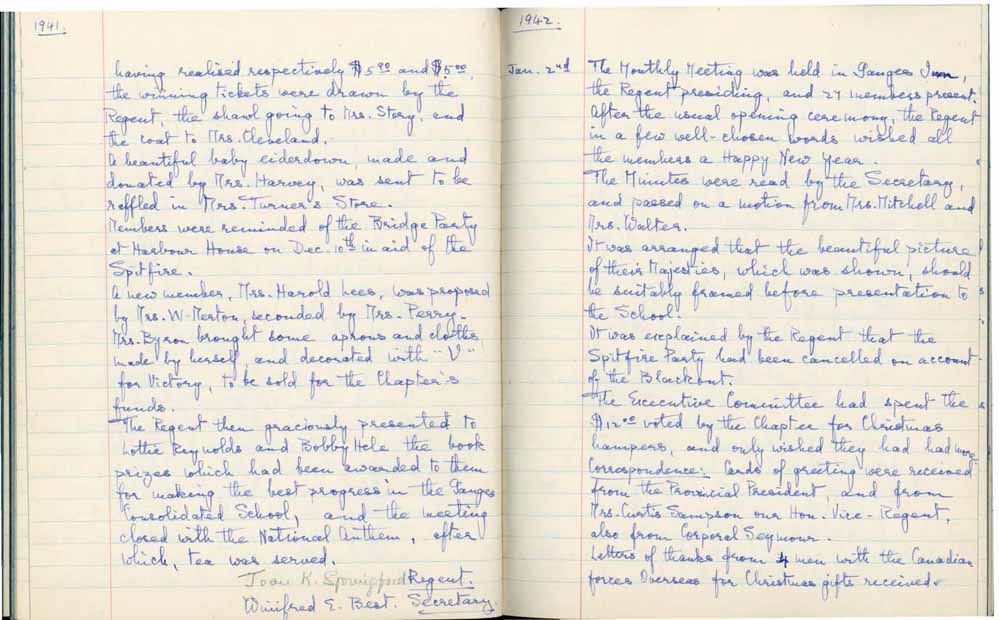 1941.
having realised respectively $5.90 and $5.00,
the winning tickets were drawn by the
Regent, the shawl going to Mrs. Story, and
the coat to Mrs. Cleveland.
A beautiful baby eiderdown, made and
donated by Mrs. Harvey, was sent to be
raffled in Mrs. Turner's Store.
Members were reminded of the Bridge Party
at Harbour House on Dec. 10th in aid of the
Spitfire.
A new member, Mrs. Harold Lees, was proposed
by Mrs. W. Norton, seconded by Mrs. Perry.
Mrs. Byron brought some aprons and clothes
made by herself and decorated with "V"
for Victory, to be sold for the Chapter's
funds.
The Regent then graciously presented to
Lottie Reynolds and Bobby Hele the book
prizes which had been awarded to them
for making the best progress in the Ganges
Consolidated School, and the meeting
closed with the National Anthem, after
which, tea was served.
Joan K. Regent.
Winifred E. Best. Secretary.
1942.
Jan. 2nd The Monthly Meeting was held in Ganges Inn,
the Regent presiding, and 27 members present.
After the usual opening ceremony, the Regent
in a few well-chosen words wished all
the members a Happy New Year.
The Minutes were read by the Secretary,
and passed on a motion from Mrs. Mitchell and
Mrs. Walter.
It was arranged that the beautiful picture
of their Majesties, which was shown, should
be suitably framed before presentation to
the School.
It was explained by the Regent that the
Spitfire Party had been cancelled on account
of the Blackout.
The Executive Committee had spent the
$12.00 voted by the Chapter for Christmas
hampers, and only wished they had had more
Correspondence: Cards of greeting were received
from the Provincial President, and from
Mrs. Curtis Sampson our Hon. Vice-Regent,
also from Corporal Seymour.
Letters of thanks from 4 men with the Canadian
forces Overseas for Christmas gifts received.